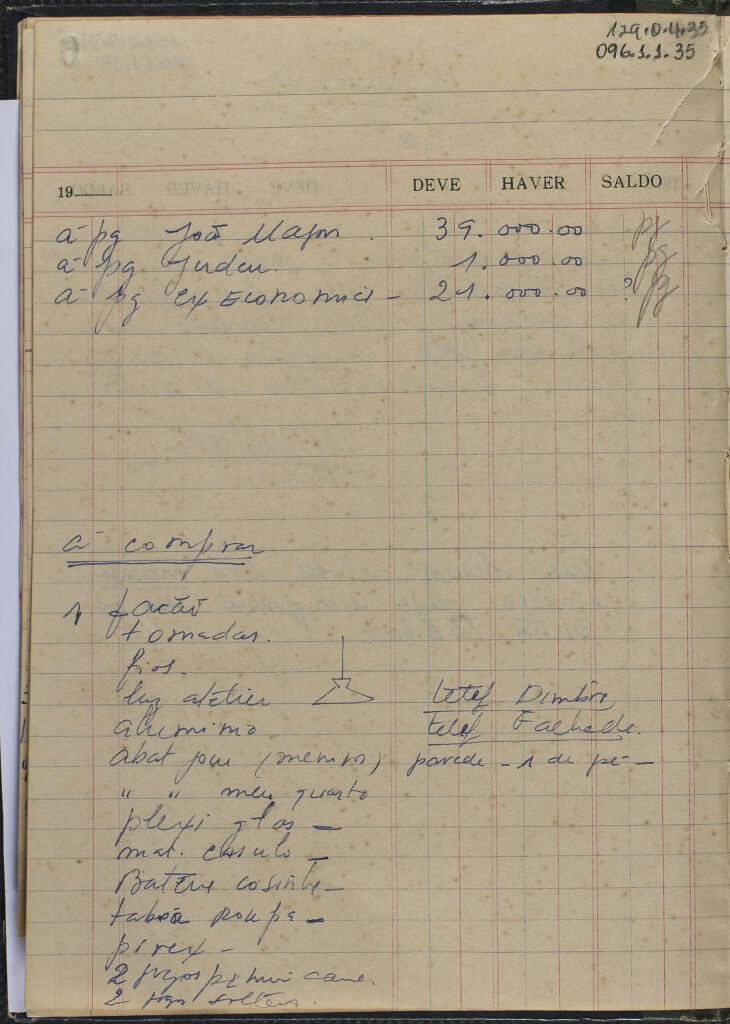 129.0.4.35
096.1.1.35
19 DEVE HAVER SALDO
a pg João Major 39.000.00 pg
a pg 1.000.00 pg
a pg Cx Economica - 21.000.00 ? pg
a comprar
1 facão
tomadas.
fios.
luz atelier telef Dimbre
aluminio telef Fachada.
abat jour (meninos) parede - 1 de pé -
" " meu quarto
plexi glas -
mat. casulo -
Bateria cosinha -
taboa roupa -
pirex -
2 jogos cama.
2